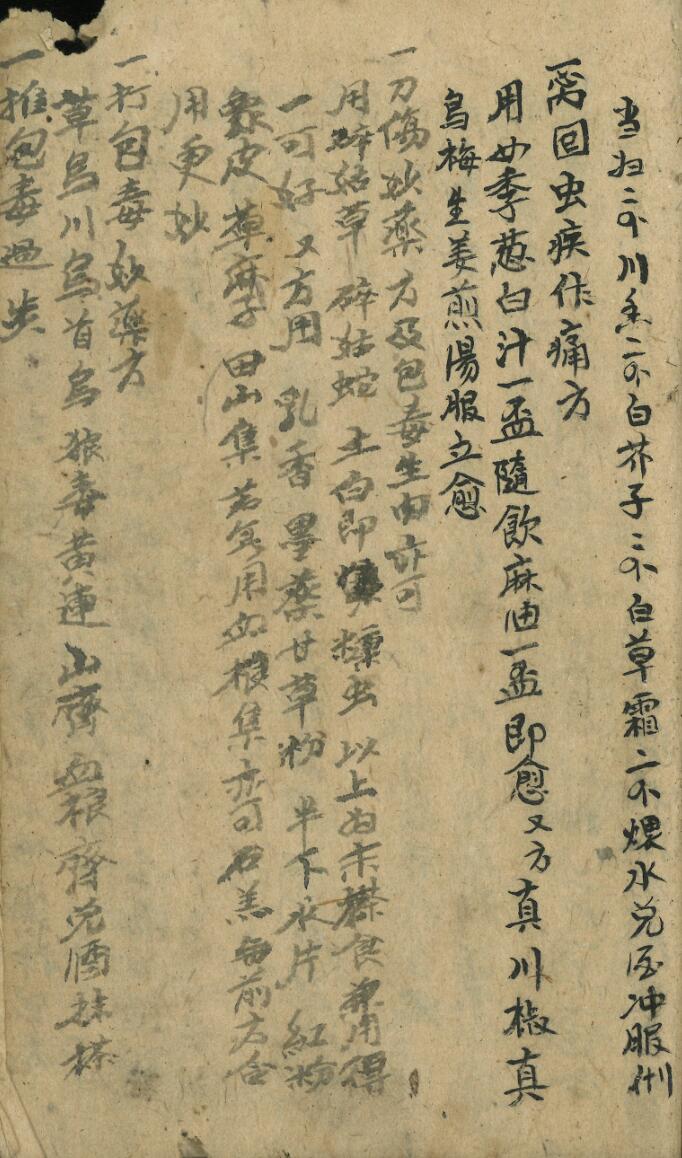 当归三个川羌二个白芥子三个白草霜二个煨水兑酒冲服
一窩回虫疾作痛方
用四季葱白汁一盃隨飲麻油一盃即愈又方真川椒真
烏梅生姜煎湯服立愈
一刀傷妙藥方及包毒生肉亦可
用碎結草 碎姑蛇 土白即 糠虫以上为末 食 用得
一可好又方用 乳香 墨藥 甘草粉 半下 氷片 紅粉
象皮 草麻子 田山集若無用血根集亦可石羔 前方合
用更妙
一打包毒妙藥方
草烏川烏首烏狼毒黄連山 血根 兑酒抹搽
一推包毒